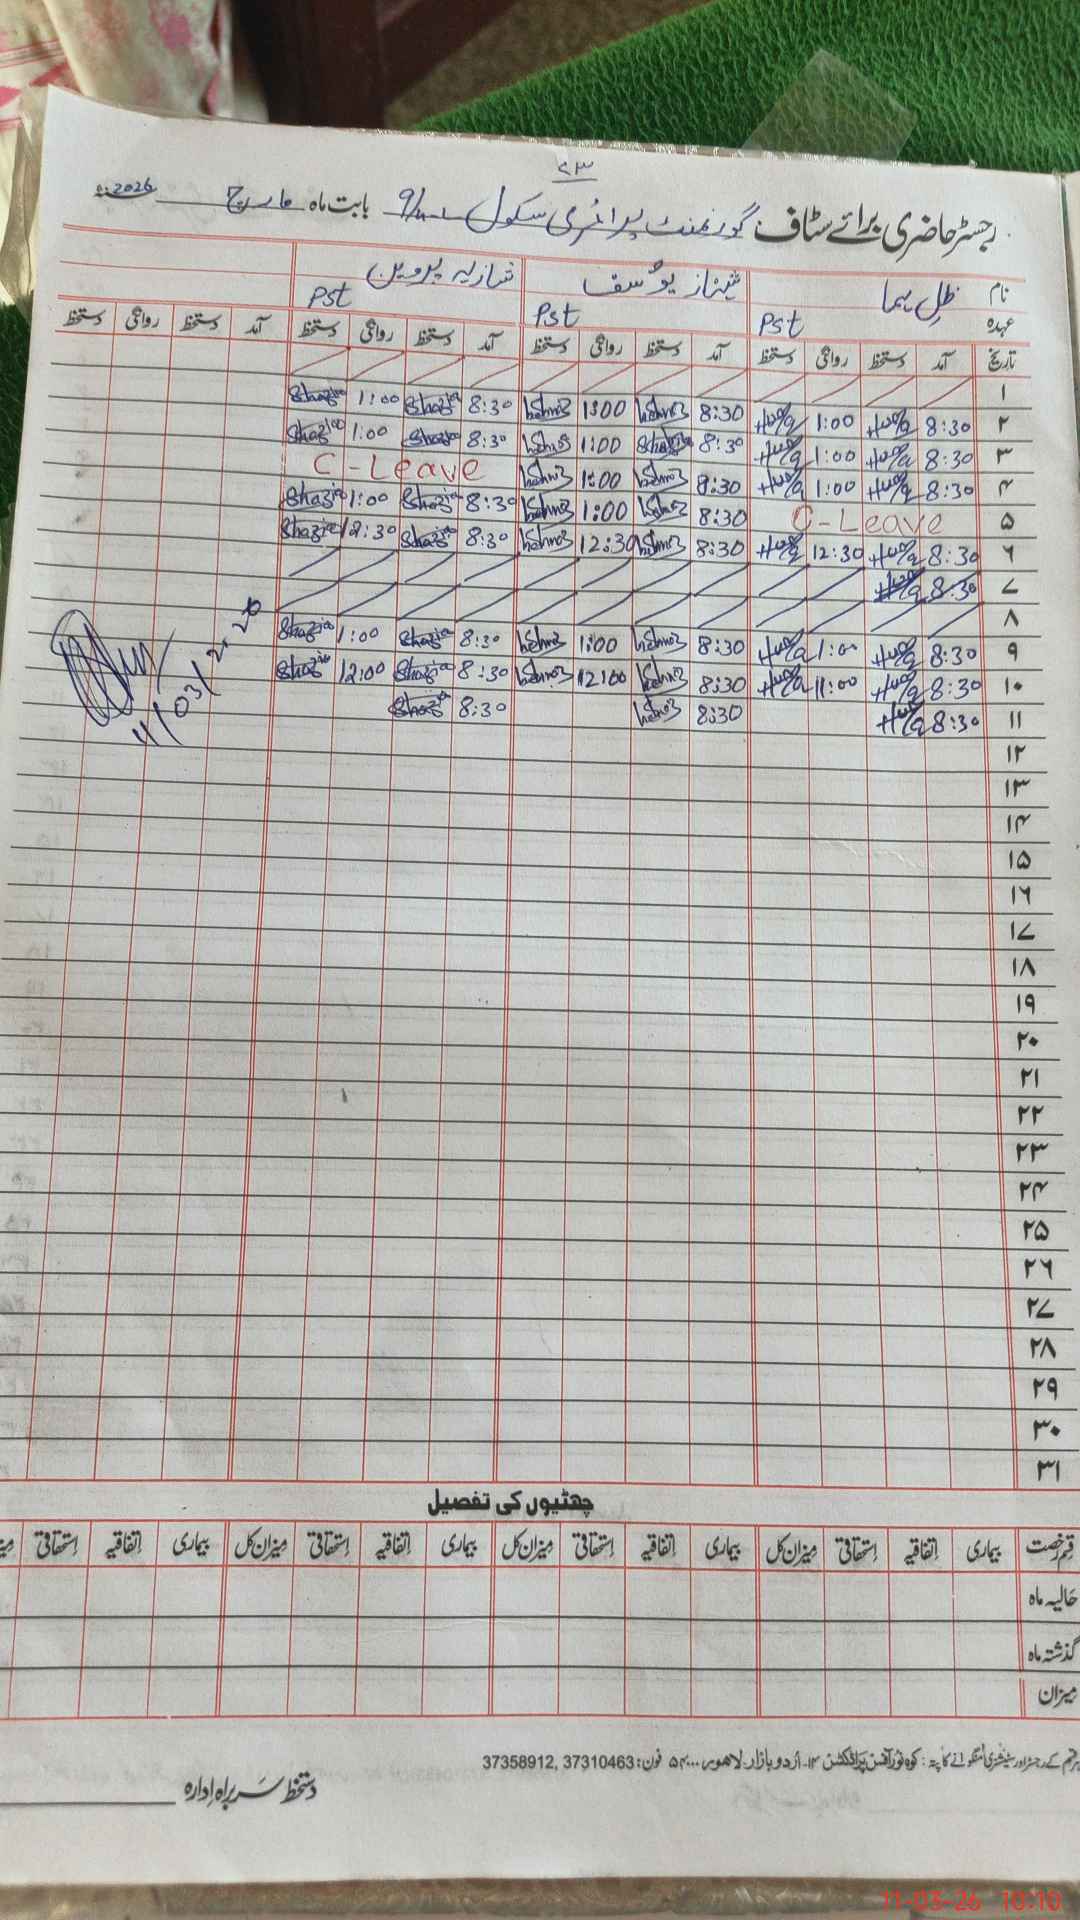 ۷۳
رجسٹر حاضری برائے سٹاف گورنمنٹ پرائمری سکول 9/ بابت ماہ مارچ 2026ء
نام ظِل ہما شہناز یوسف شازیہ پروین
عہدہ Pst Pst Pst
تاریخ آمد دستخط روانگی دستخط آمد دستخط روانگی دستخط آمد دستخط روانگی دستخط آمد دستخط روانگی دستخط
۱
۲ 8:30 Huma 1:00 Huma 8:30 1:00 8:30 Shazia 1:00 Shazia
۳ 8:30 Huma 1:00 Huma 8:30 1:00 8:30 Shazia 1:00 Shazia
۴ 8:30 Huma 1:00 Huma 8:30 1:00 C-Leave
۵ C-Leave 8:30 1:00 8:30 Shazia 1:00 Shazia
۶ 8:30 Huma 12:30 Huma 8:30 12:30 8:30 Shazia 12:30 Shazia
۷ 8:30 Huma
۸
۹ 8:30 Huma 1:00 Huma 8:30 1:00 8:30 Shazia 1:00 Shazia
۱۰ 8:30 Huma 11:00 Huma 8:30 12:00 8:30 Shazia 12:00 Shazia
۱۱ 8:30 Huma 8:30 8:30 Shazia
11/03/2026
۱۲
۱۳
۱۴
۱۵
۱۶
۱۷
۱۸
۱۹
۲۰
۲۱
۲۲
۲۳
۲۴
۲۵
۲۶
۲۷
۲۸
۲۹
۳۰
۳۱
چھٹیوں کی تفصیل
قسم رخصت بیماری اتفاقیہ استحقاقی میزان کل بیماری اتفاقیہ استحقاقی میزان کل بیماری اتفاقیہ استحقاقی میزان کل بیماری اتفاقیہ استحقاقی
حالیہ ماہ
گذشتہ ماہ
میزان
ہر قسم کے رجسٹر اور سٹیشنری منگوانے کا پتہ: کوہ نور آفس پراڈکشن ۱۳۔ اُردو بازار لاہور۔۵۴۰۰۰ فون: 37310463 ,37358912
دستخط سربراہ ادارہ
11-03-26 10:10